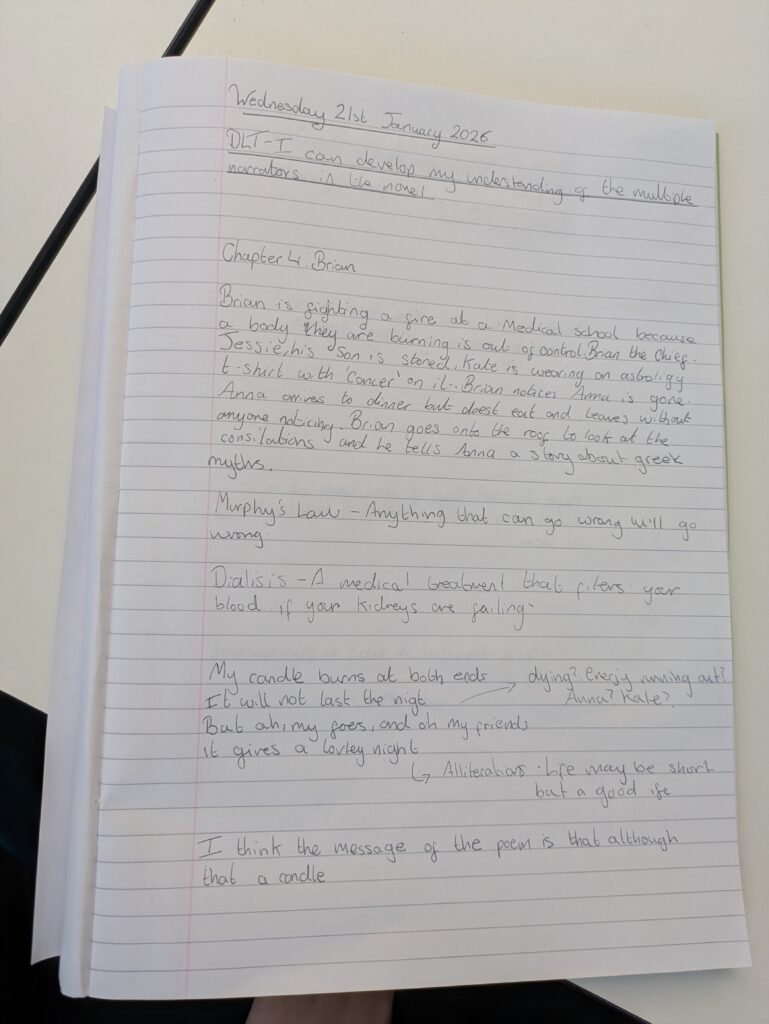 Wednesday 21st January 2026
DLT-I can develop my understanding of the multiple
narrators in the novel
Chapter 4 Brian
Brian is fighting a fire at a Medical school because
a body they are burning is out of control. Brian the Chief.
Jessie, his son is stored. Kate is wearing an astroligy
t-shirt with 'cancer' on it. Brian notices Anna is gone.
Anna arrives to dinner but doest eat and leaves without
anyone noticing. Brian goes onto the roof to look at the
consilations and he tells Anna a story about greek
myths.
Murphy's Law - Anything that can go wrong will go
wrong.
Dialisis - A medical treatment that filters your
blood if your kidneys are failing.
My candle burns at both ends
It will not last the nigt
But ah, my foes, and oh my friends
it gives a lovley night
dying? energy running out?
Anna? Kate?
Alliteration. Life may be short
but a good ife
I think the message of the poem is that although
that a candle